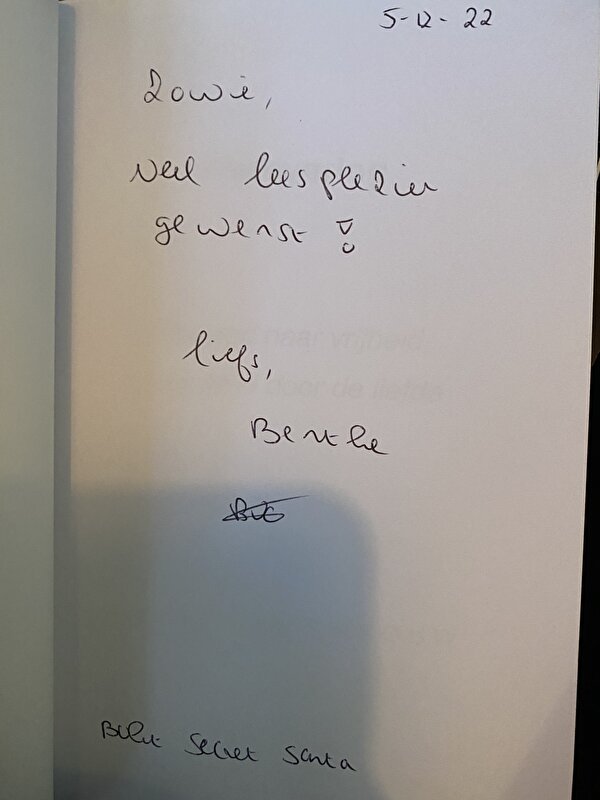 5-12-22
Zowie,
Veel leesplezier
gewenst!
liefs,
Berthe
Secret Santa